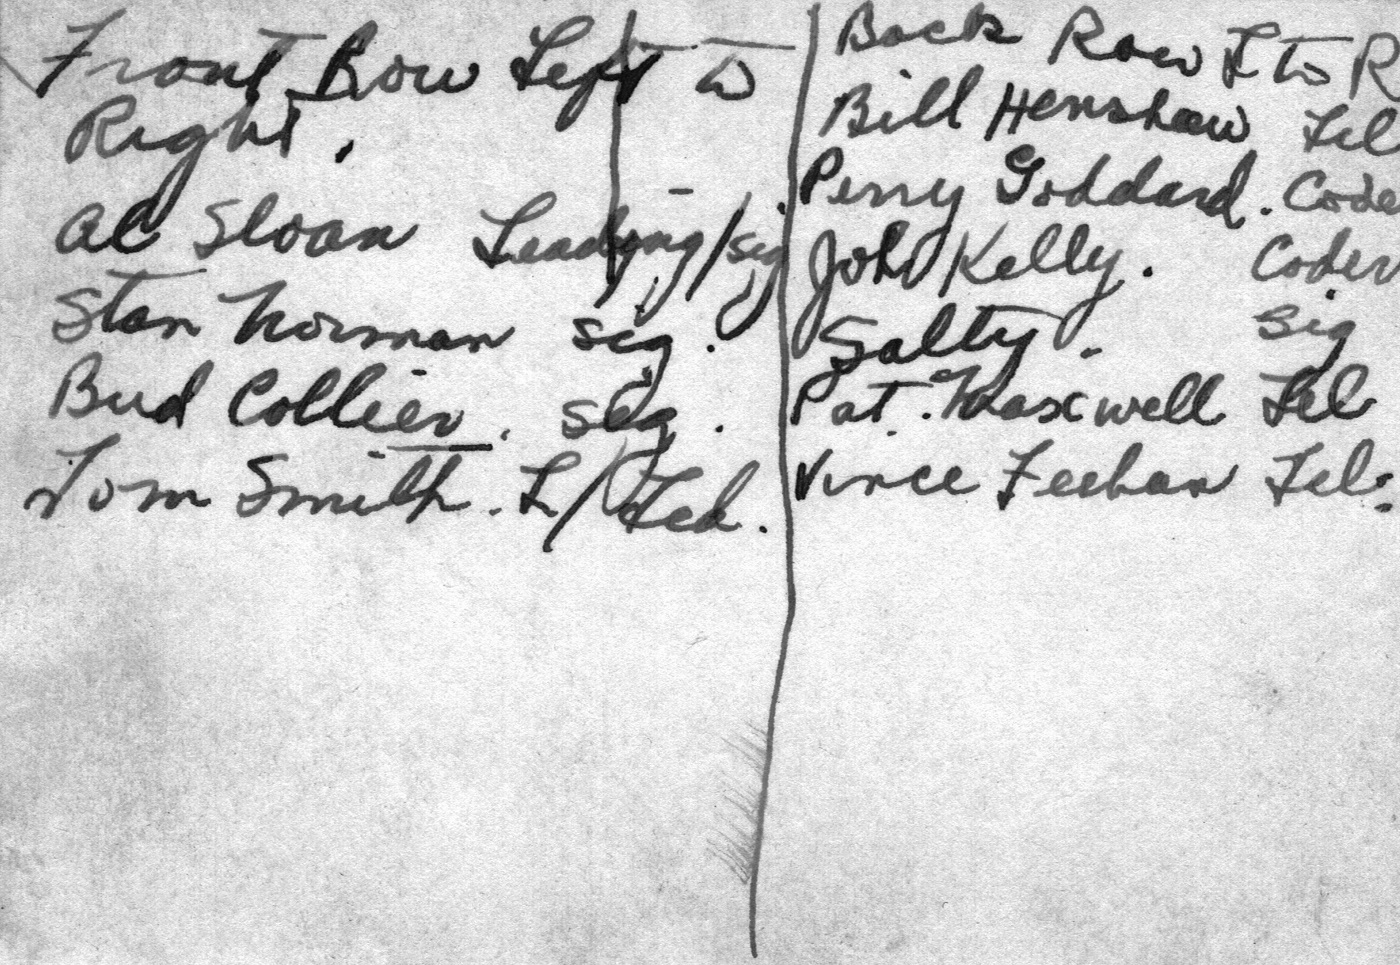 Front Row Left to
Right.
Al Sloan Leading/sig
Stan Norman sig.
Bud Collier. sig.
Tom Smith. L/Tel.
Back Row L to R
Bill Henshaw Tel
Perry Goddard. Code
John Kelly. Coder
Salty. Sig
Pat. Maxwell Tel
Vince Feehan Tel.